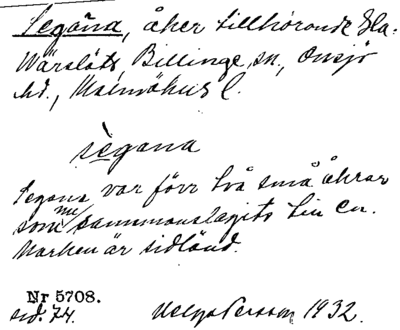 Segåna, åker tillhörande Sla-
Wärslöts, Billinge sn., Onsjö
hd., Malmöhus l.
sègana
Segana var förr två små åkrar
som nu sammanslagits till en.
Marken är sidländ.
Nr 5708.
sid. 74. Helge Persson 1932.